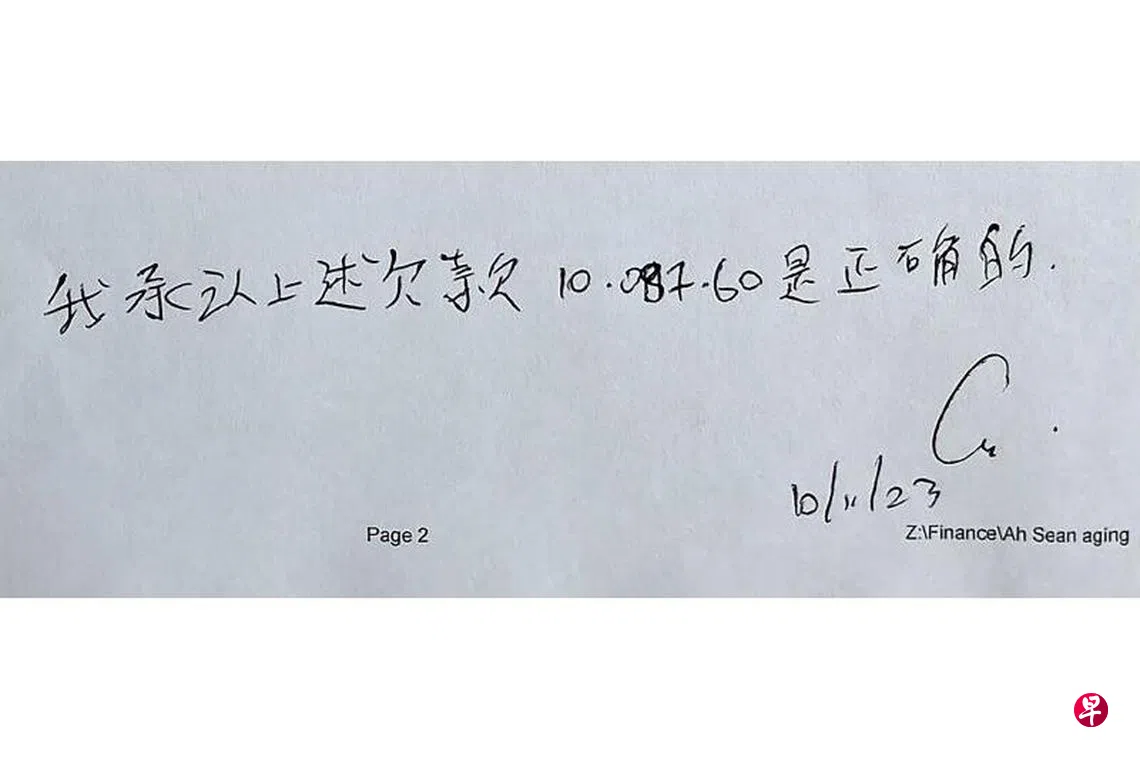 我承认上述欠款 10.087.60是正确的.
10/11/23
Page 2
Z:\Finance\Ah Sean aging
早